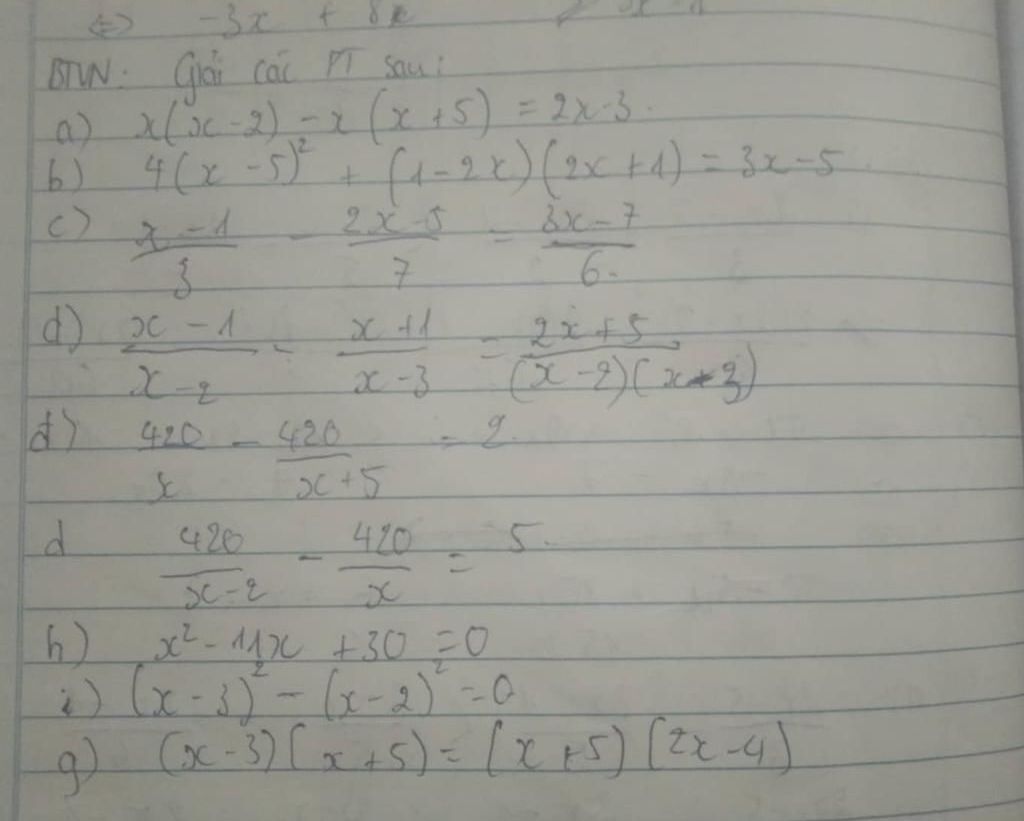 ⇔ -3x + 8x
BTVN: Giải các PT sau:
a) x(x-2) - x(x+5) = 2x-3.
b) 4(x-5)² + (1-2x)(2x+1) = 3x-5
c) \frac{x-1}{3} - \frac{2x-5}{7} = \frac{3x-7}{6}
d) \frac{x-1}{x-2} - \frac{x+1}{x-3} = \frac{2x+5}{(x-2)(x-3)}
đ) \frac{420}{x} - \frac{420}{x+5} = 2
d \frac{420}{x-2} - \frac{420}{x} = 5.
h) x² - 11x + 30 = 0
i) (x-3)² - (x-2)² = 0
g) (x-3)(x+5) = (x+5)(2x-4)